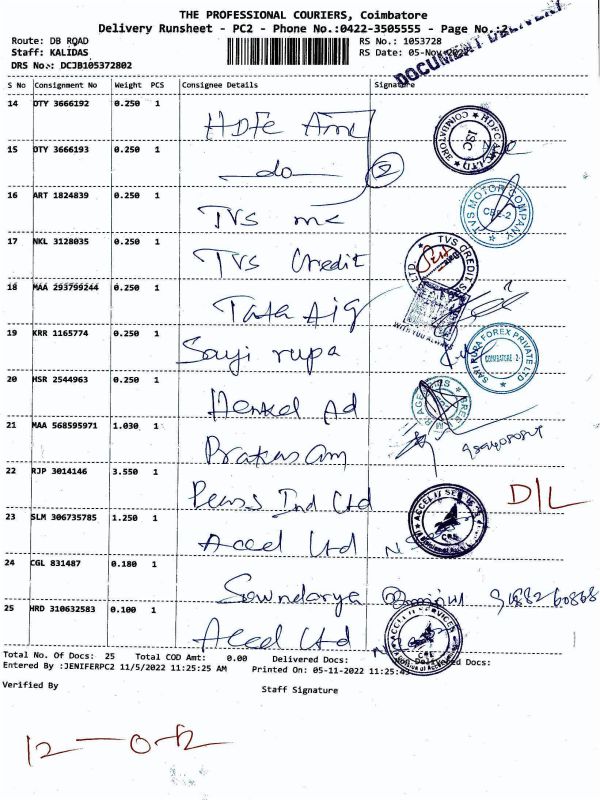 THE PROFESSIONAL COURIERS, Coimbatore
Delivery Runsheet - PC2 - Phone No.:0422-3505555 - Page No.:2
Route: DB ROAD
RS No.: 1053728
Staff: KALIDAS
RS Date: 05-Nov-2022
DRS No.: DCJB105372802
DOCUMENT DELIVERY
S No Consignment No Weight PCS Consignee Details Signature
14 DTY 3666192 0.250 1 HDFC
15 DTY 3666193 0.250 1 do 2
16 ART 1824839 0.250 1 TVS mc
TVS MOTOR COMPANY CBE-2
17 NKL 3128035 0.250 1 TVS Credit
TVS CREDIT
18 MAA 293799244 0.250 1 Tata Aig
WITH YOU ALWAYS
19 KRR 1165774 0.250 1 Sayi rupa
SAYI RUPA FOREX PRIVATE LTD COIMBATORE - 2
20 HSR 2544963 0.250 1 Henkel Ad
21 MAA 568595971 1.030 1 Prakasam
22 RJP 3014146 3.550 1 Pearss Ind Ltd D/L
23 SLM 306735785 1.250 1 Accel Ltd
CBE
24 CGL 831487 0.180 1 Sowndarya
25 HRD 310632583 0.100 1 Accel Ltd
ACCEL IT SERVICES CBE
Total No. Of Docs: 25 Total COD Amt: 0.00 Delivered Docs: Non Delivered Docs:
Entered By :JENIFERPC2 11/5/2022 11:25:25 AM Printed On: 05-11-2022 11:25:45
Verified By
Staff Signature
12-0-12